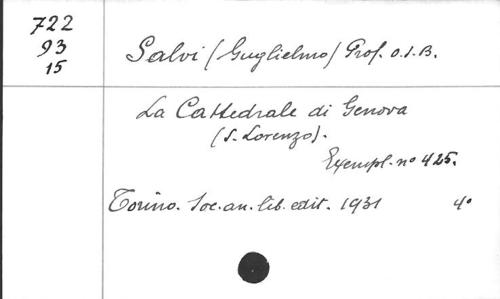 722
93
15
Salvi (Guglielmo) Prof. o.s.B.
La Cattedrale di Genova
(S. Lorenzo).
Exempl. nº 425.
Torino. Soc. an. lib. edit. 1931 4º